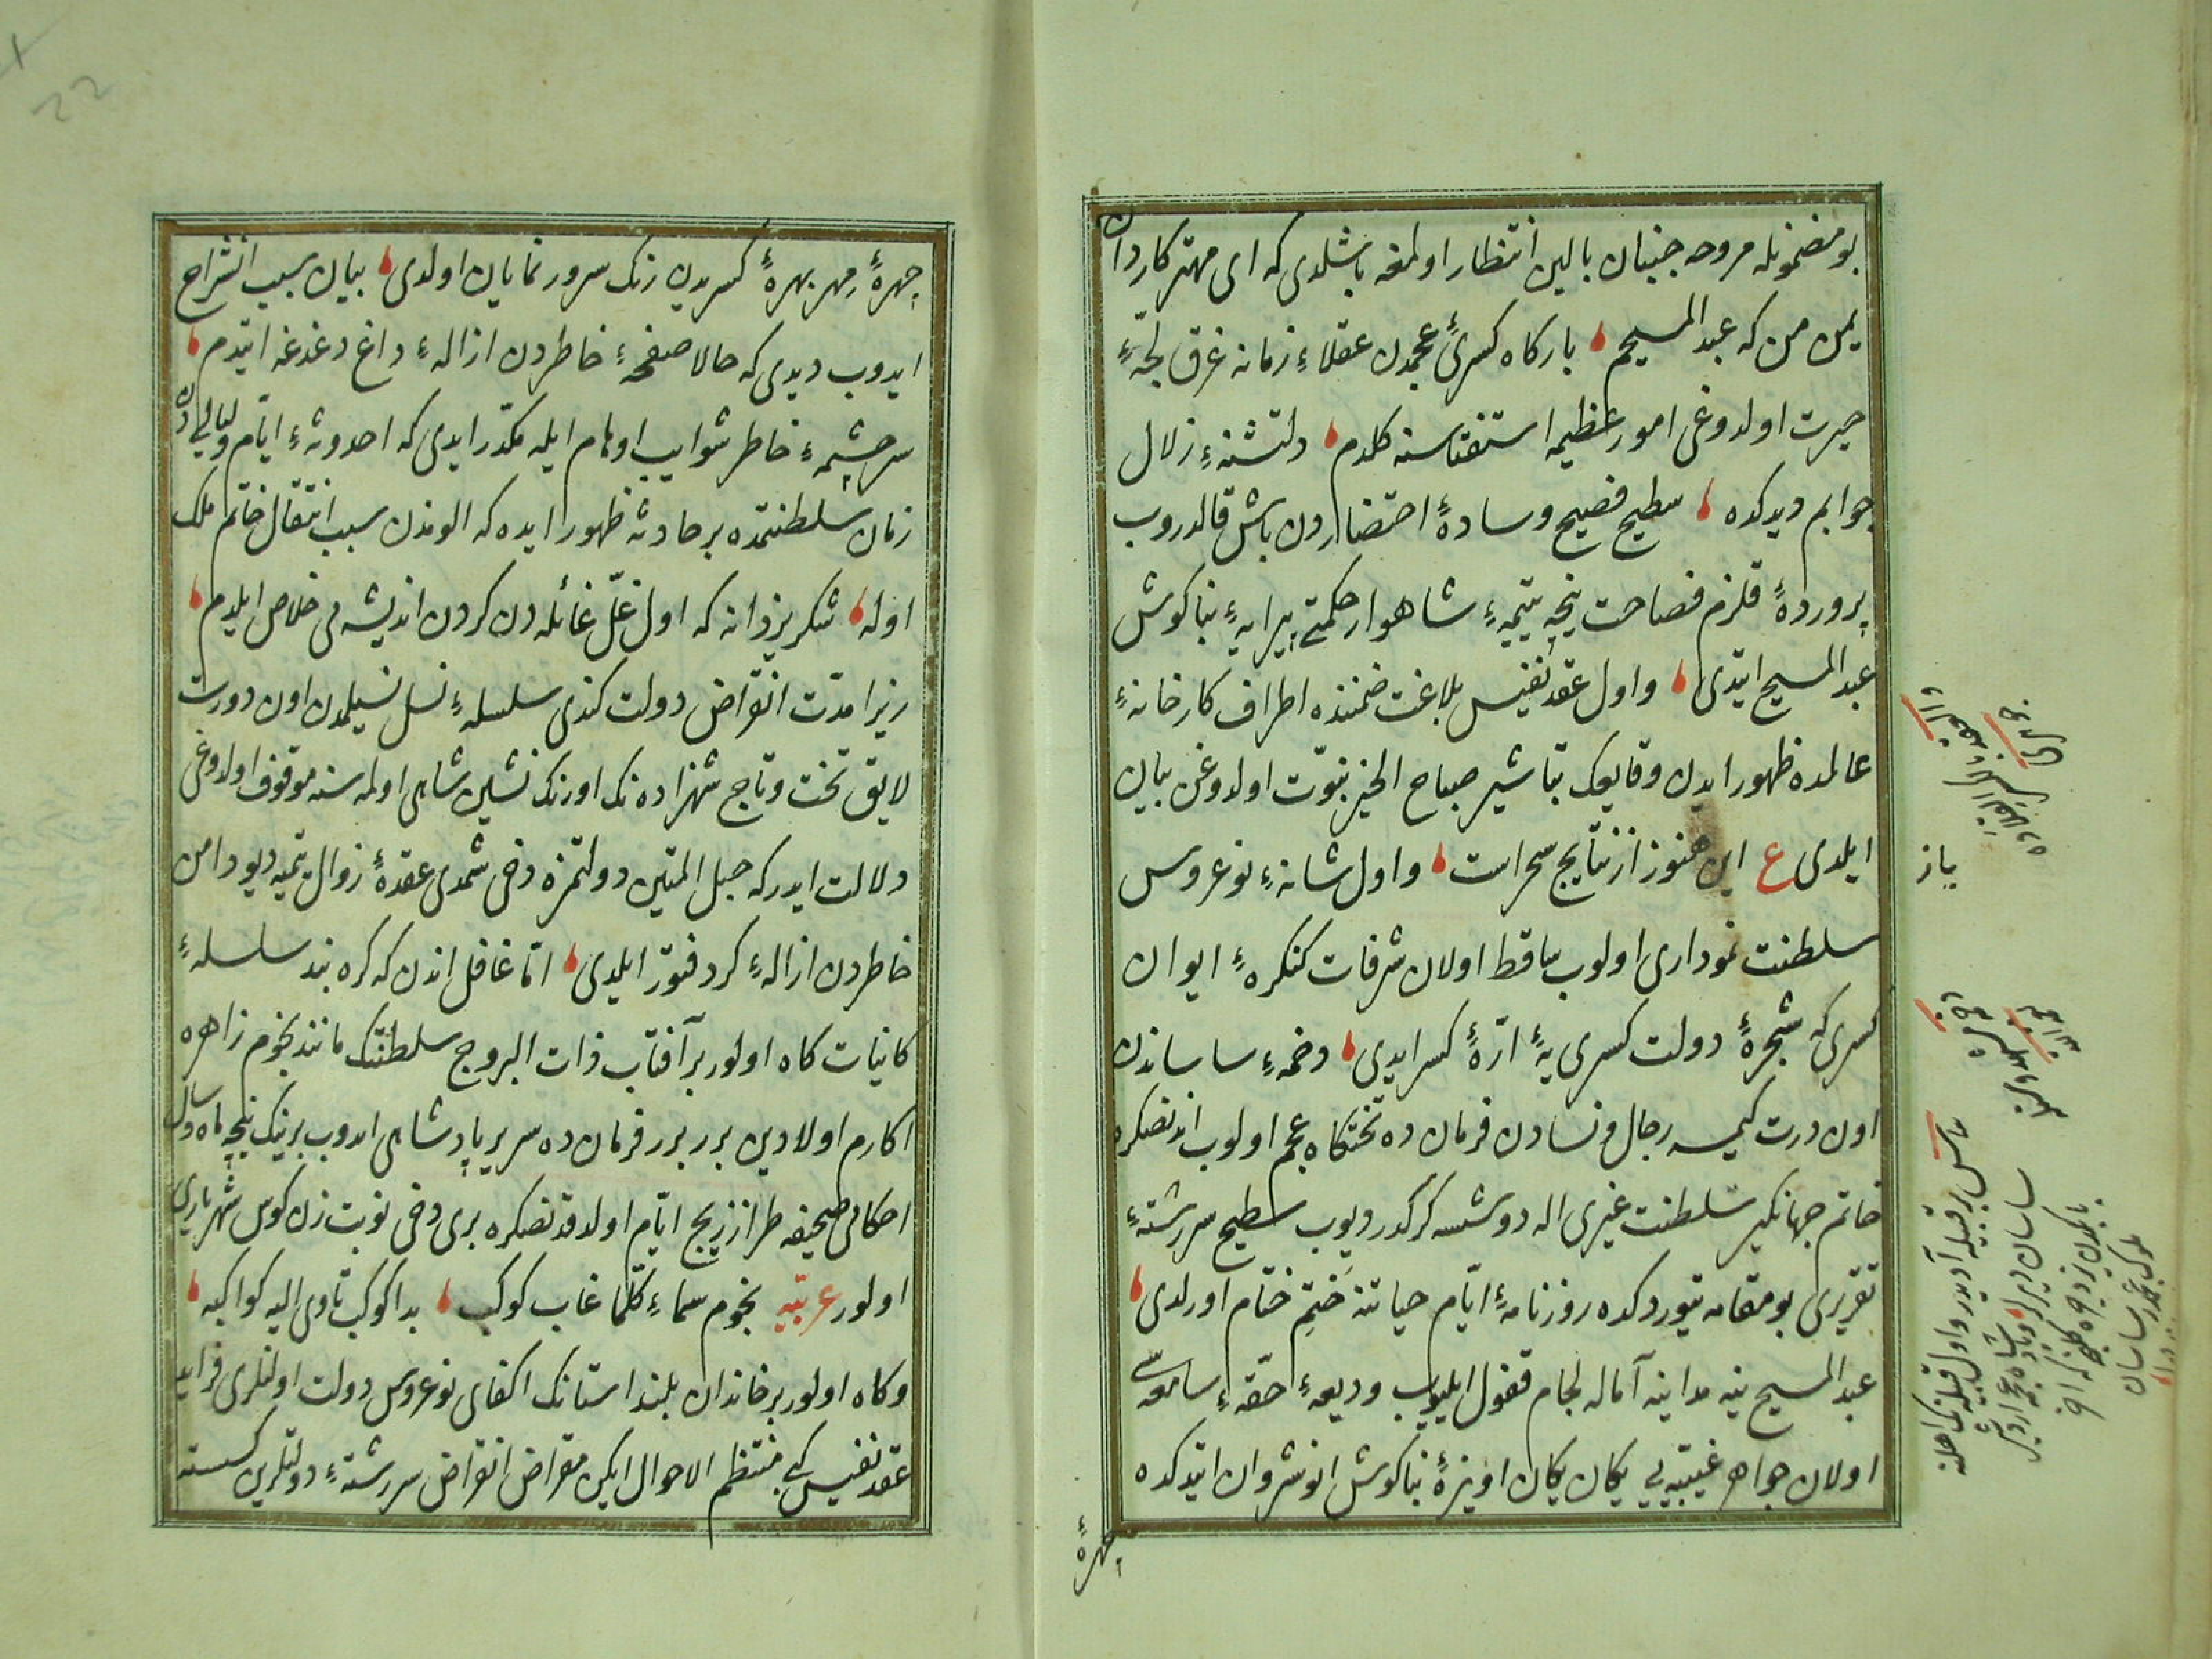 بو مضمونله مروحه جنبان بالین انتظار اولمغه باشلدی که ای مهتر کاردان
یمن من که عبد المسیحم بارکاه کسرئ عجمدن عقلاء زمانه غرق لجّهٔ
حیرت اولدوغی امور عظیمه استفتاسنه کلدم دلتشنهٔ زلال
جوابم دیدکده سطیح فصیح وسادهٔ احتضاردن باش قالدروب
پروردهٔ قلزم فصاحت نیجه یتیمهٔ شاهوار حکمتی پیرایهٔ بناکوش
عبد المسیح ایتدی واول عقد نفیس بلاغت ضمننده اطراف کارخانهٔ
عالمده ظهور ایدن وقایعک تباشیر صباح الخیر نبوّت اولدوغن بیان
ایلدی ع این هنوز از نتایج سحر است واول شانهٔ نوعروس
سلطنت نموداری اولوب ساقط اولان شرفات کنکرهٔ ایوان
کسری که شجرهٔ دولت کسری یه ارّهٔ کسر ایدی دخمهٔ ساساندن
اون درت کیمسه رجال ونسادن فرمان ده تختکاه عجم اولوب اندنصکره
خاتم جهانکیر سلطنت غیری اله دوشسه کرکدر دیوب سطیح سررشتهٔ
تقریری بو مقامه یتوردکده روزنامهٔ ایّام حیاتنه ختم ختام اورلدی
عبد المسیح ینه مداینه آماله لجام قفول ایلیوب ودیعهٔ حقّهٔ سامعه سی
اولان جواهر غیبیه یی یکان یکان اویزهٔ بناکوش انوشروان ایتدکده
چهرهٔ
یاز
چهرهٔ مهر بهرهٔ کسریدن رنک سرور نمایان اولدی بیان سبب انشراح
ایدوب دیدی که حالا صفحهٔ خاطردن ازالهٔ داغ دغدغه ایتدم
سرچشمهٔ خاطر شوایب اوهام ایله مکدّر ایدی که احدوثهٔ ایّام ولیالیدن
زمان سلطنتمده بر حادثه ظهور ایده که الومدن سبب انتقال خاتم ملک
اوله شکر یزدانه که اول غلّ غائله دن کردن اندیشه می خلاص ایلدم
زیرا مدّت انقراض دولت کندی سلسلهٔ نسل نسیلمدن اون دورت
لایق تخت وتاج شهزاده نک اورنک نشین شاهی اولمه سنه موقوف اولدوغی
دلالت ایدر که حبل المتین دولتمزه دخی شمدی عقدهٔ زوال یتمیه دیو دامن
خاطردن ازالهٔ کرد فتور ایلدی امّا غافل اندن که کره بند سلسلهٔ
کائنات کاه اولور بر آفتاب ذات البروج سلطنتک مانند نجوم زاهره
اکارم اولادین برر برر فرمان ده سریر پادشاهی ایدوب برینک نیجه ماه وسال
احکامی صحیفه طراز زیج ایّام اولدقدنصکره بری دخی نوبت زن کوس شهریاری
اولور عربیّه نجوم سماء کلّما غاب کوکب بدا کوکب تاوی الیه کواکبه
وکاه اولور بر خاندان بلند استانک اکفای نوعروس دولت اولنلری فراید
عقد نفیس کبی منتظم الاحوال ایکن مقراض انقراض سررشتهٔ دولتلرین کسسته